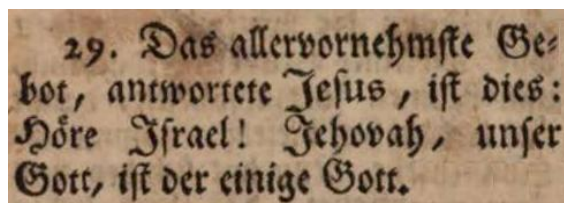 29. Das allervornehmste Ge⸗
bot, antwortete Jesus, ist dies:
Höre Israel! Jehovah, unser
Gott, ist der einige Gott.